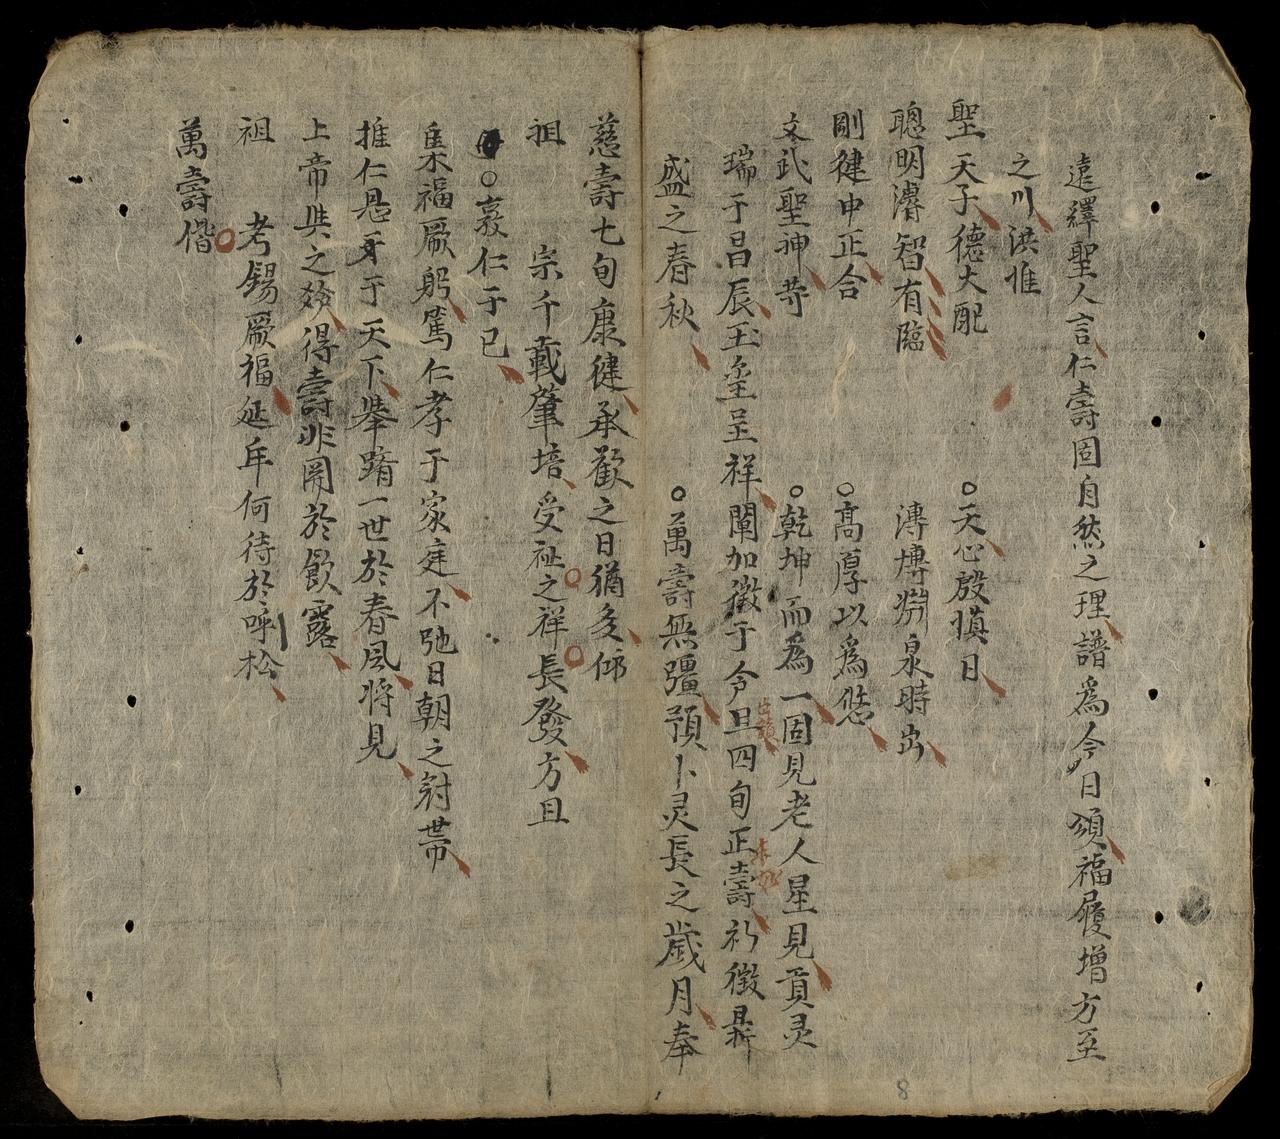 遠繹聖人言仁壽固自然之理譜為今日頌福履增方至
之川洪惟
聖天子德大配○天心殷慎日
聰明濬智有臨溥博淵泉時出
剛健中正合○高厚以為悠
文武聖神○乾坤而為一固見老人星見貢灵
瑞于昌辰玉呈祥闡加徵于令旦四旬正壽祈徵昇
盛之春秋○萬壽無疆預卜灵長之歲月奉
慈壽七旬康健承歡之日猶多仰
祖宗千載肇培受祉之祥長發方且
○裒仁于已
集福厥躬篤仁孝于家庭不弛日朝之
推仁恩于天下举躋一世於春風将見
上帝與之齡得壽非関於飲露
祖考錫厥福延年何待於呼松
萬壽偕
8